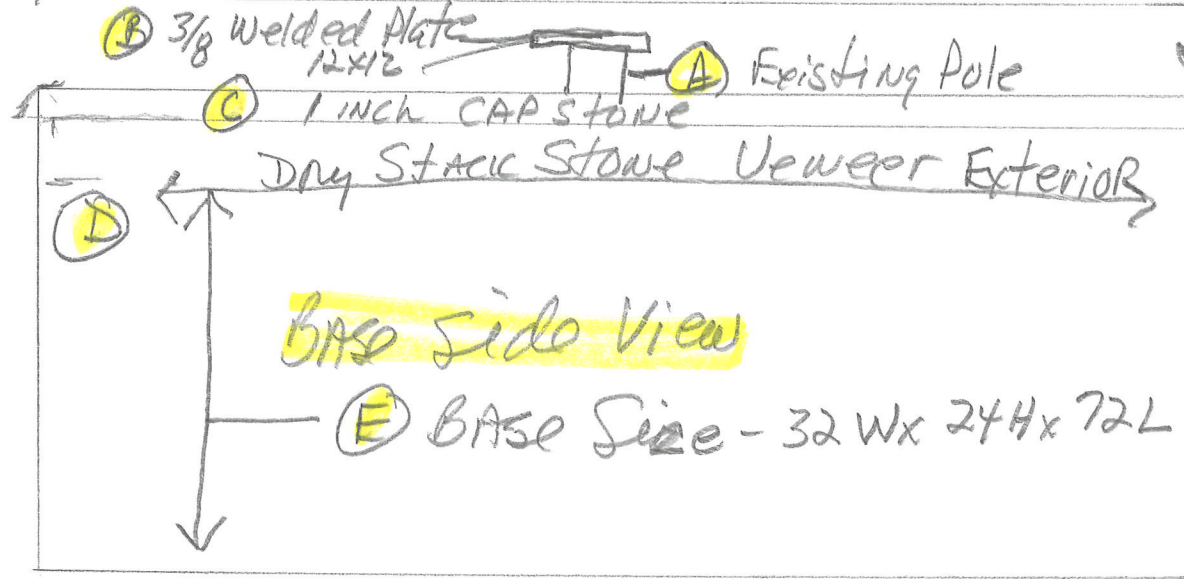 B 3/8 Welded Plate
12x12
A Existing Pole
C 1 INCH CAP STONE
Dry Stack Stone Veweer Exterior
D
Base Side View
E Base Size - 32 Wx 24Hx 72L